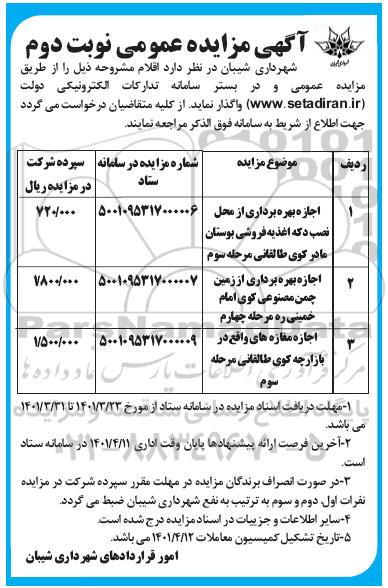 آگهی مزایده عمومی نوبت دوم
شهرداری شیبان در نظر دارد اقلام مشروحه ذیل را از طریق
مزایده عمومی و در بستر سامانه تدارکات الکترونیکی دولت
(www.setadiran.ir) واگذار نماید. از کلیه متقاضیان درخواست می گردد
جهت اطلاع از شریط به سامانه فوق الذکر مراجعه نمایند.
ردیف
موضوع مزایده
شماره مزایده در سامانه
ستاد
سپرده شرکت
در مزایده ریال
۱
اجازه بهره برداری از محل
نصب دکه اغذیه فروشی بوستان
مادر کوی طالقانی مرحله سوم
۵۰۰۱۰۹۵۳۱۷۰۰۰۰۰۶
۷۲۰/۰۰۰
۲
اجازه بهره برداری از زمین
چمن مصنوعی کوی امام
خمینی ره مرحله چهارم
۵۰۰۱۰۹۵۳۱۷۰۰۰۰۰۷
۱/۸۰۰/۰۰۰
۳
اجازه مغازه های واقع در
بازارچه کوی طالقانی مرحله
سوم
۵۰۰۱۰۹۵۳۱۷۰۰۰۰۰۹
۱/۵۰۰/۰۰۰
۱-مهلت دریافت اسناد مزایده در سامانه ستاد از مورخ ۱۴۰۱/۳/۲۳ تا ۱۴۰۱/۳/۳۱
می باشد.
۲-آخرین فرصت ارائه پیشنهادها پایان وقت اداری ۱۴۰۱/۴/۱۱ در سامانه ستاد
است.
۳-در صورت انصراف برندگان مزایده در مهلت مقرر سپرده شرکت در مزایده
نفرات اول، دوم و سوم به ترتیب به نفع شهرداری شیبان ضبط می گردد.
۴-سایر اطلاعات و جزییات در اسناد مزایده درج شده است.
۵-تاریخ تشکیل کمیسیون معاملات ۱۴۰۱/۴/۱۲ می باشد.
امور قراردادهای شهرداری شیبان